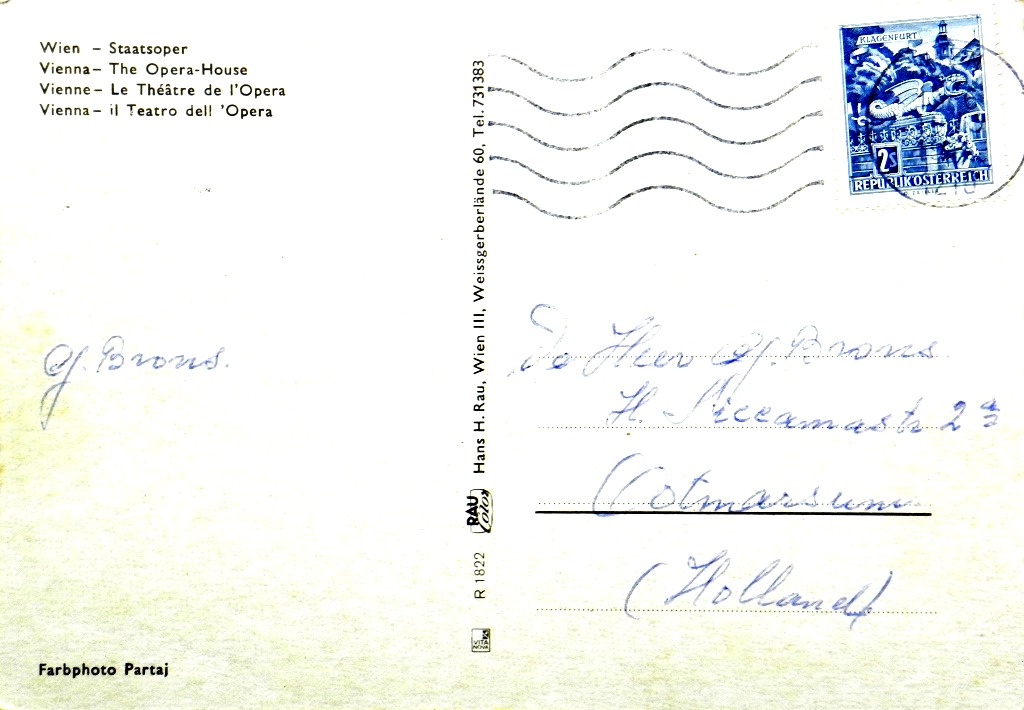 Wien – Staatsoper
Vienna – The Opera-House
Vienne – Le Théâtre de l'Opera
Vienna – il Teatro dell 'Opera
G. Brons.
Farbphoto Partaj
Hans H. Rau, Wien III, Weissgerberlände 60, Tel. 731383
RAU
Color
R 1822
VITA
NOVA
KLAGENFURT
2s
REPUBLIK ÖSTERREICH
De Heer G. Brons
H. Siccamastr 2a
Ootmarsum
(Holland)